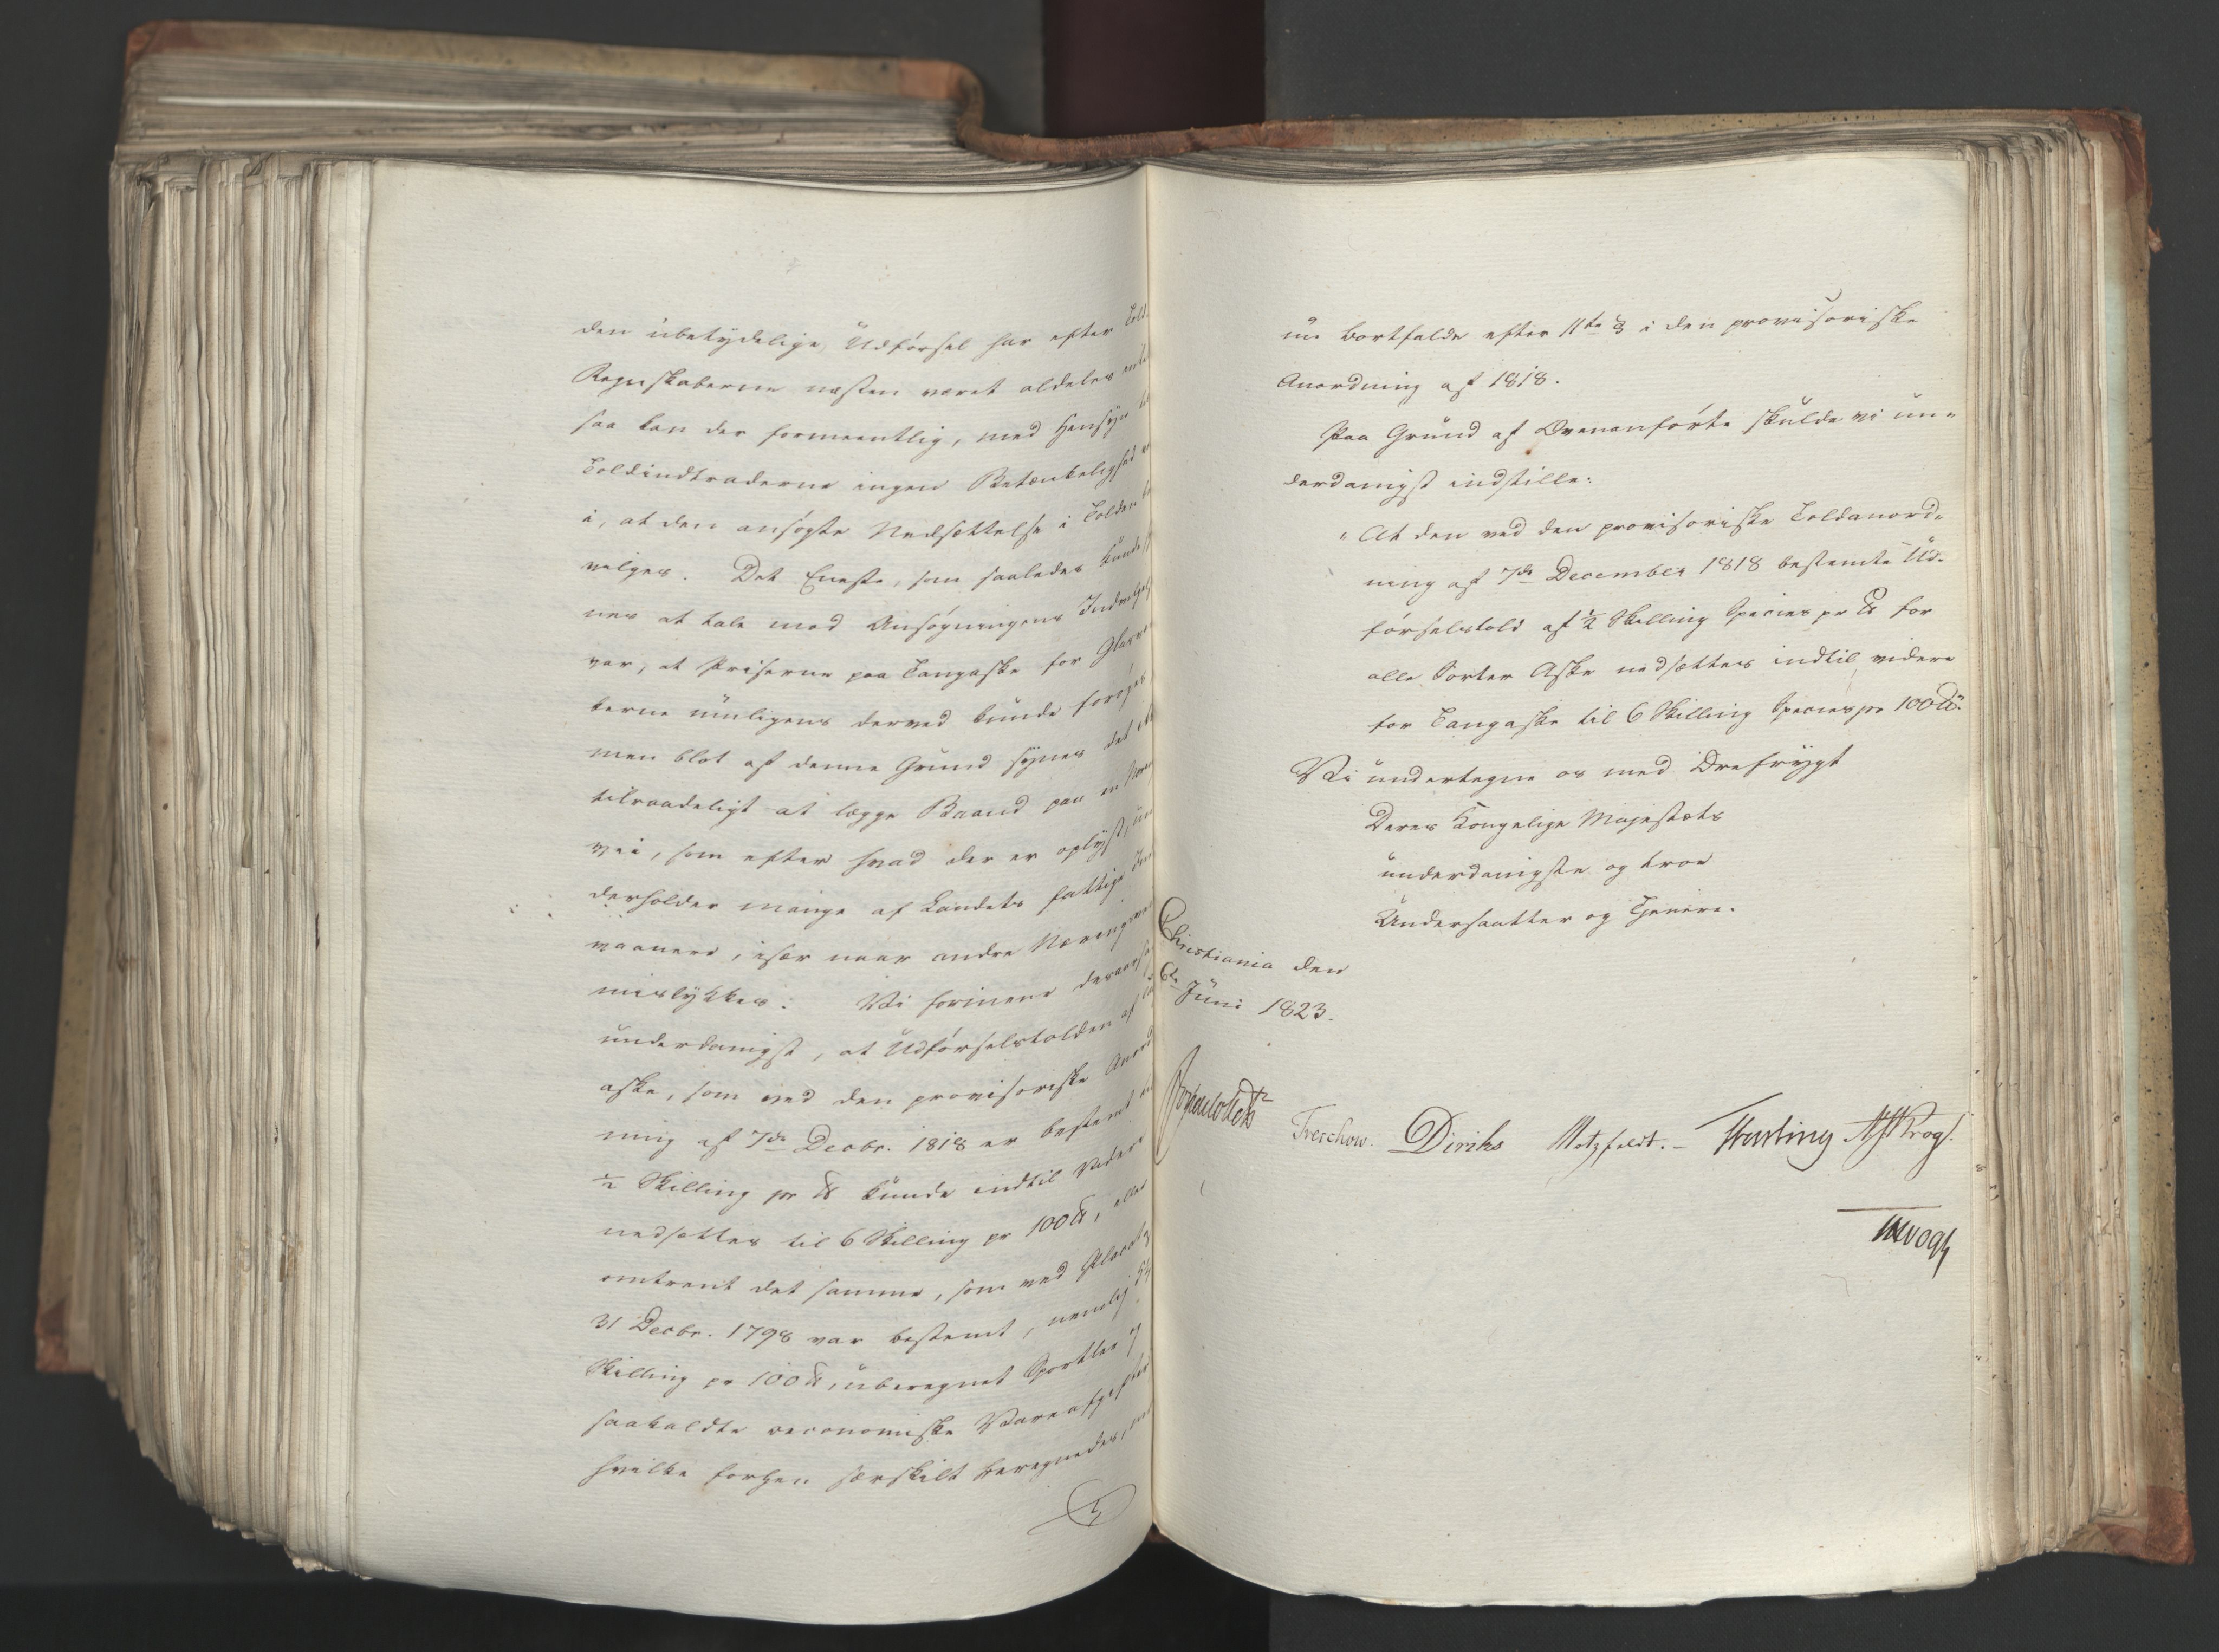 den ubetydelige Udførsel har efter Told-
Regnskaberne næsten været aldeles
saa kan der formeentlig, med Hensyn
Toldindtraderne ingen Betænkelighed
i, at den ansøgte Nedsættelse i Tolden
vilges. Det Eneste, som saaledes kunde
nes at tale mod Ansøgningens
var, at Priserne paa Tangaske for
kerne muligens derved kunde forøges
men blot af denne Grund synes det
tilraadeligt at lægge Baand paa en
vei, som efter hvad der er oplyst, un
derholder mange af Landets fattige
vaanere, især naar andre
mislykkes. Vi formene
underdanigst, at Udførselstolden af
aske, som ved den provisoriske Anord
ning af 7de Decbr. 1818 er bestemt
½ Skilling pr ℔ kunde indtil Videre
nedsættes til 6 Skilling pr 100 ℔, eller
omtrent det samme, som ved Placat
31 Decbr. 1798 var bestemt, nemlig
Skilling pr 100 ℔, uberegnet Sportler og
saakaldte oeconomiske Vareafgifter
hvilke forhen særskilt beregnedes, men
nu bortfalde efter 11te § i den provisoriske
Anordning af 1818.
Paa Grund af Ovenanførte skulde vi un-
derdanigst indstille:
"At den ved den provisoriske Toldanord-
ning af 7de December 1818 bestemte Ud-
førselstold af ½ Skilling Species pr ℔ for
alle Sorter Aske nedsættes indtil videre
for Tangaske til 6 Skilling Species pr 100 ℔."
Vi undertegne os med Ærefrygt
Deres Kongelige Majestæts
underdanigste og troe
Undersaatter og Tjenere.
Christiania den
6te Juni 1823.
Treschow. Diriks Motzfeldt. Krog.
Vogt